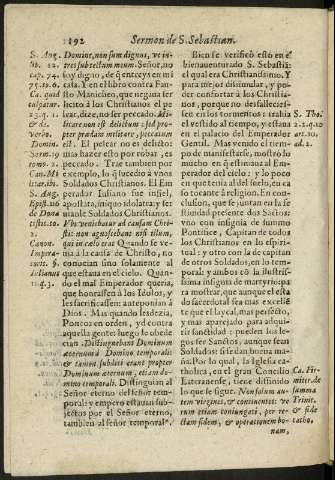 192 Sermon de S. Sebastian.
S. Aug.
lib. 22.
cap. 74.
75. to. 6.
Ca. quid
culpatur.
23. q. 1.
Et de
verbo.
Domin.
Serm. 19
tom. 2.
Can. Mi
litar. ib.
S. Aug.
Epist. 116
de Dona
tistis. to.
2.
Canon.
Impera-
tores. §.
Iulianus
11. q. 3.
Domine, non sum dignus, ut in-
tres sub tectum meum. Señor, no
soy digno, de q̃ entreys en mi
casa. Y en el libro contra Fau-
sto Manicheo, que negaua ser
licito à los Christianos el pe
lear, dize, no ser peccado. Mi-
litare non est delictum: sed pro-
pter prædam militare, peccatum
est. El pelear no es delicto:
mas hazer esto por robar, es
peccado. Trae tambien por
exemplo, lo q̃ sucedio à vnos
Soldados Christianos. El Em
perador Iuliano fue infiel,
apostata, iniquo idolatra; y ser
uianle Soldados Christianos.
Vbi veniebatur ad causam Chri-
sti: non agnoscebant nisi illum,
qui in cælo erat. Quando se ve-
nia à la causa de Christo, no
conocian sino solamente al
que estaua en el cielo. Quan-
do el mal Emperador queria,
que honrassen à los Idolos, y
les sacrificassen: anteponian à
Dios. Mas quando les dezia,
Poneos en orden, yd contra
aquella gente: luego le obede
cian. Distinguebant Dominum
æternum à Domino temporali:
& tamen subditi erant propter
Dominum æternum, etiam do-
mino temporali. Distinguian al
Señor eterno del señor tem-
poral: y empero estauan sub-
jectos por el Señor eterno,
tambien al señor temporal.
Bien se verificò esto en el
bienauenturado S. Sebastiã:
el qual era Christianissimo. Y
para mejor dissimular, y po-
der consolar à los Christia-
nos, porque no desfalleciessen
en los tormentos: trahia
el vestido al tiempo, y estaua
en el palacio del Emperador
Gentil. Mas venido el tiem-
po de manifestarse, mostrò lo
mucho en q̃ estimaua al Em
perador del cielo: y lo poco
en que tenia al del suelo, en ca
so tocante à religion. En con-
clusion, que se juntan en la fe
stiuidad presente dos Sactos:
vno con insignia de summo
Pontifice, Capitan de todos
los Christianos en lo espiri-
tual: y otro con la de capitan
de otros Soldados, en lo tem-
poral: y ambos cõ la illustris-
sima insignia de martyrio: pa
ra mostrar, que aunque el esta
do sacerdotal sea mas excelẽ
te que el laycal, mas perfecto,
y mas aparejado para adqui-
rir sanctidad: pueden los le-
gos ser Sanctos, aunque sean
Soldados: si siruen buena ma-
no. Por lo qual, la Iglesia ca-
tholica, en el gran Concilio
Lateranense, tiene diffinido
lo que se sigue. Non solum au-
tem virgines, & continentes: ve-
rum etiam coniugati, per re-
ctam fidem, & operationem bo-
nam,
S. Tho.
2. 2. q. 10
art. 10.
ad. 2.
Ca. Fir-
miter. de
summa
Trinit.
& fide
catho.